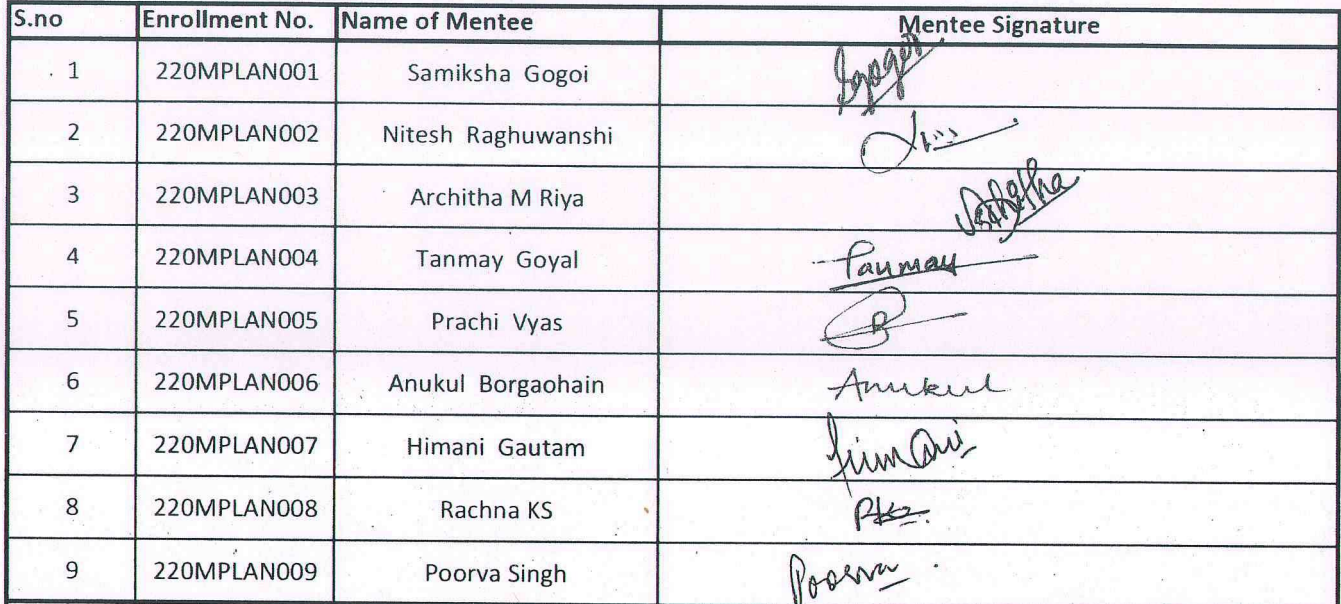 S.no Enrollment No. Name of Mentee Mentee Signature
1 220MPLAN001 Samiksha Gogoi
2 220MPLAN002 Nitesh Raghuwanshi
3 220MPLAN003 Architha M Riya
4 220MPLAN004 Tanmay Goyal Tanmay
5 220MPLAN005 Prachi Vyas
6 220MPLAN006 Anukul Borgaohain Anukul
7 220MPLAN007 Himani Gautam Himani
8 220MPLAN008 Rachna KS
9 220MPLAN009 Poorva Singh Poorva